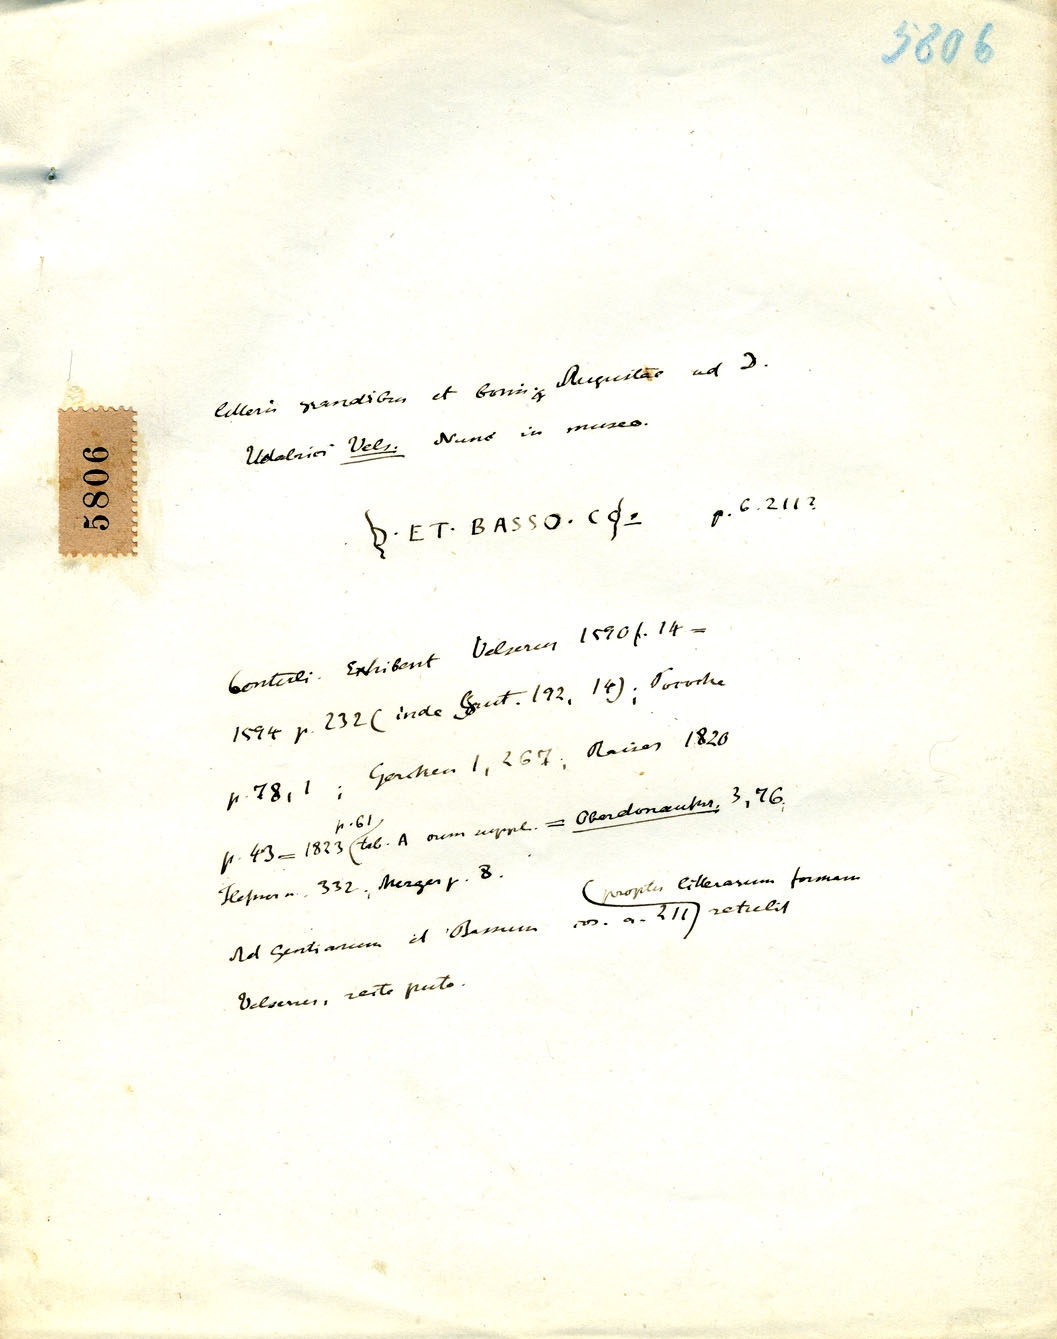 5806
litteris grandibus et bonis Augustae ad D.
Udalrici Vels. Nunc in museo.
5806
D · ET · BASSO · CO p. C. 211?
Contuli. Exhibent Velserus 1590 f. 14 =
1594 p. 232 (inde Grut. 192, 14); Pococke
p. 78, 1; Gercken 1, 267; Raiser 1820
p. 61
p. 43 = 1823 (tab. A cum suppl. = Oberdonaukr. 3, 76;
Hefner n. 332; Mezger p. 8.
(propter litterarum formam
Ad Gentianum et Bassum cos. a. 211) rettulit
Velserus, recte puto.